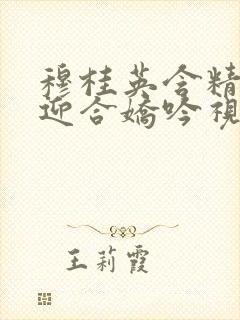 穆桂英含精
迎合娇吟 视
王莉霞